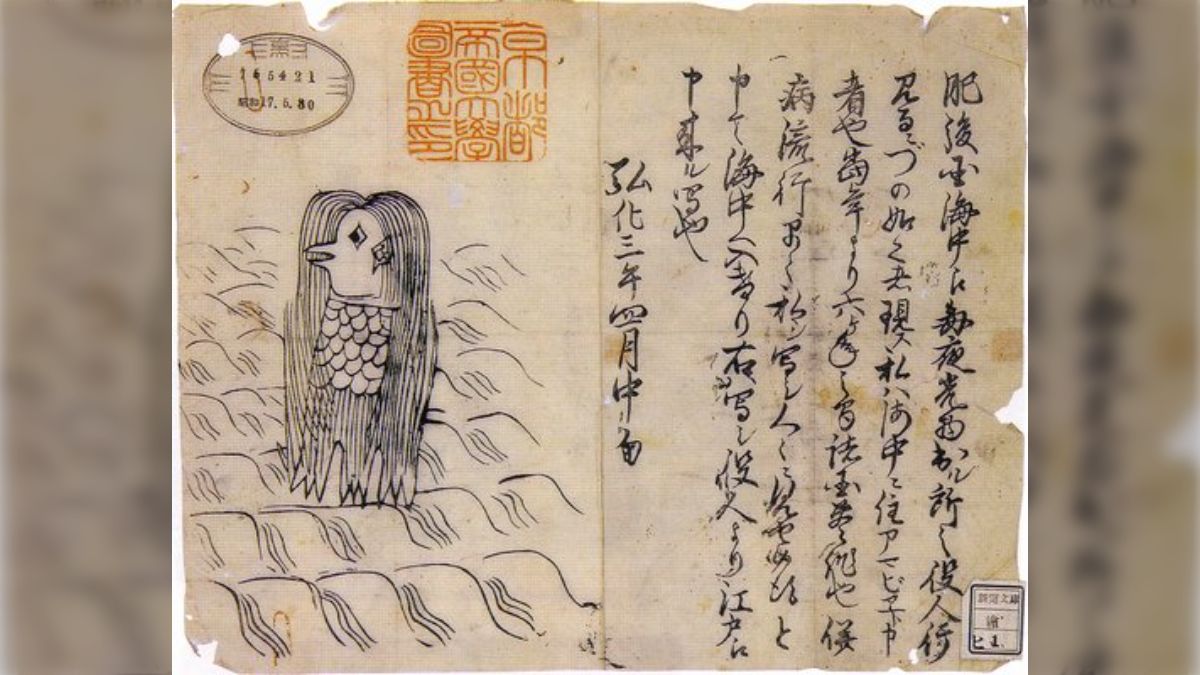 京都
帝國大學
圖書之印
昭和17.5.30
肥後国海中え毎夜光物出ル所之役人行
見るニづの如く者現ス私ハ海中ニ住アマビヱト申
者也当年より六ヶ年之間諸国豊作也併
病流行早々私シ写シ人々ニ見せ候得と
申て海中へ入けり右写シ役人より江戸え
申来ル写也
弘化三年四月中旬
新聞文庫
繪
ヒ 1